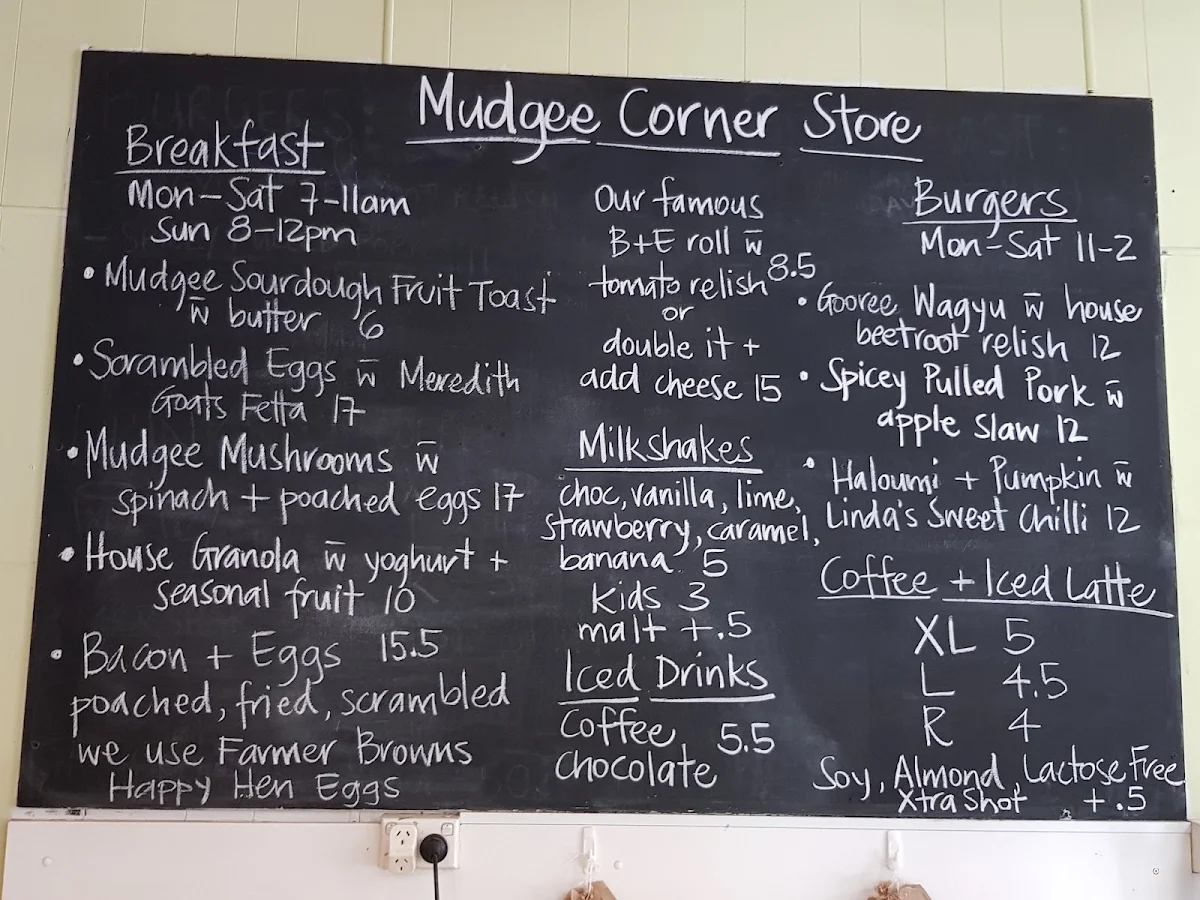 Mudgee Corner Store
Breakfast
Mon-Sat 7-11am
Sun 8-12pm
• Mudgee Sourdough Fruit Toast
w̄ butter 6
• Scrambled Eggs w̄ Meredith
Goats Fetta 17
• Mudgee Mushrooms w̄
spinach + poached eggs 17
• House Granola w̄ yoghurt +
seasonal fruit 10
• Bacon + Eggs 15.5
poached, fried, scrambled
we use Farmer Browns
Happy Hen Eggs
Our famous
B+E roll w̄
tomato relish 8.5
or
double it +
add cheese 15
Milkshakes
choc, vanilla, lime,
strawberry, caramel,
banana 5
Kids 3
malt +.5
Iced Drinks
Coffee 5.5
chocolate
Burgers
Mon-Sat 11-2
• Gooree Wagyu w̄ house
beetroot relish 12
• Spicey Pulled Pork w̄
apple slaw 12
• Haloumi + Pumpkin w̄
Linda's Sweet Chilli 12
Coffee + Iced Latte
XL 5
L 4.5
R 4
Soy, Almond, Lactose Free
Xtra Shot +.5